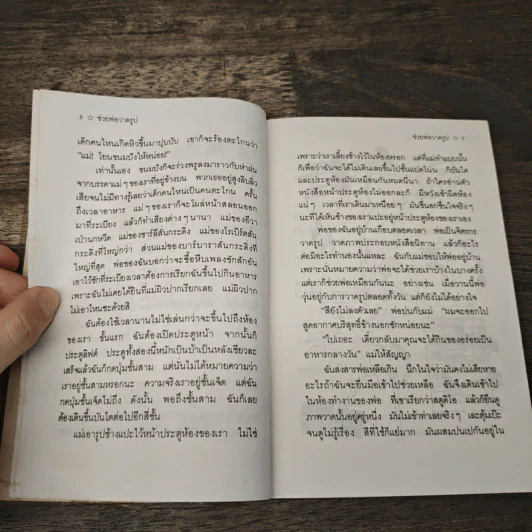 8 ☆ ช่วยพ่อวาดรูป
เด็กคนไหนเกิดหิวขึ้นมาปุบปับ เขาก็จะร้องตะโกนว่า
"แม่! โยนขนมปังให้หน่อย!"
เท่านั้นเอง ขนมปังก็จะร่วงพรูลงมาราวกับห่าฝน
จากบรรดาแม่ ๆ ของเราที่อยู่ข้างบน พวกเธออยู่สูงลิบลิ่ว
เสียจนไม่มีทางรู้เลยว่าเด็กคนไหนเป็นคนตะโกน ครั้น
ถึงเวลาอาหาร แม่ ๆ ของเราก็จะโผล่หน้าสลอนออก
มาที่ระเบียง แล้วก็ทำเสียงต่าง ๆ นานา แม่ของอีวา
เป่านกหวีด แม่ของชาร์ลีสั่นกระดิ่ง แม่ของโรเบิร์ตสั่น
กระดิ่งที่ใหญ่กว่า ส่วนแม่ของบาร์บาราสั่นกระดิ่งที่
ใหญ่ที่สุด พ่อของฉันบอกว่าจะซื้อหีบเพลงชักสักอัน
เอาไว้ชักที่ระเบียงเวลาต้องการเรียกฉันขึ้นไปกินอาหาร
เพราะฉันไม่เคยได้ยินที่แม่ผิวปากเรียกเลย แม่ผิวปาก
ไม่เอาไหนซะด้วยสิ
ฉันต้องใช้เวลานานไม่ใช่เล่นกว่าจะขึ้นไปถึงห้อง
ของเรา ขั้นแรก ฉันต้องเปิดประตูหน้า จากนั้นก็
ประตูลิฟต์ ประตูทั้งสองนี้หนักเป็นบ้าเป็นหลังเชียวละ
เสร็จแล้วฉันก็กดปุ่มชั้นสาม แต่นั่นไม่ได้หมายความว่า
เราอยู่ชั้นสามหรอกนะ ความจริงเราอยู่ชั้นเจ็ด แต่ฉัน
กดปุ่มชั้นเจ็ดไม่ถึง ดังนั้น พอถึงชั้นสาม ฉันก็เลย
ต้องเดินขึ้นบันไดต่อไปอีกสี่ชั้น
แม่เอารูปช้างแปะไว้หน้าประตูห้องของเรา ไม่ใช่
ช่วยพ่อวาดรูป ☆ 9
เพราะว่าเราเลี้ยงช้างไว้ในห้องหรอก แต่ที่แม่ทำแบบนั้น
ก็เพื่อว่าฉันจะได้ไม่เดินเลยขึ้นไปชั้นแปดโน่น ก็บันได
และประตูห้องมันเหมือนกันหมดนี่นา ถ้าใครอ่านตัว
หนังสือหน้าประตูห้องไม่ออกละก็ มีหวังเข้าผิดห้อง
แน่ ๆ เวลาที่เราเดินมาเหนื่อย ๆ มันชื่นอกชื่นใจจริง ๆ
นะที่ได้เห็นช้างของเราแปะอยู่หน้าประตูห้องของเราเอง
พ่อของฉันอยู่บ้านเกือบตลอดเวลา พ่อเป็นจิตรกร
วาดรูป วาดภาพประกอบหนังสือนิทาน แล้วก็อะไร
ต่อมิอะไรทำนองนั้นแหละ ฉันก็แม่ชอบให้พ่ออยู่บ้าน
เพราะนั่นหมายความว่าพ่อจะได้ช่วยเราบ้างในบางครั้ง
แต่เราก็ช่วยพ่อเหมือนกันนะ อย่างเช่น เมื่อวานนี้พ่อ
วุ่นอยู่กับการวาดรูปตลอดทั้งวัน แต่ก็ยังไม่ได้อย่างใจ
"สียังไม่ลงตัวเลย" พ่อบ่นกับแม่ "ผมจะออกไป
สูดอากาศบริสุทธิ์ข้างนอกซักหน่อยนะ"
"ไปเถอะ เดี๋ยวกลับมาคุณจะได้กินของอร่อยเป็น
อาหารกลางวัน" แม่ให้สัญญา
ฉันสงสารพ่อเหลือเกิน นึกในใจว่ามันคงไม่เสียหาย
อะไรถ้าฉันจะยื่นมือเข้าไปช่วยเหลือ ฉันจึงเดินเข้าไป
ในห้องทำงานของพ่อ ที่เขาเรียกว่าสตูดิโอ แล้วก็ยืนดู
ภาพวาดนั้นอยู่ครู่หนึ่ง มันไม่เข้าท่าเลยจริง ๆ เละตุ้มเป๊ะ
จนดูไม่รู้เรื่อง สีที่ใช้ก็แย่มาก มันผสมปนเปกันอยู่ใน